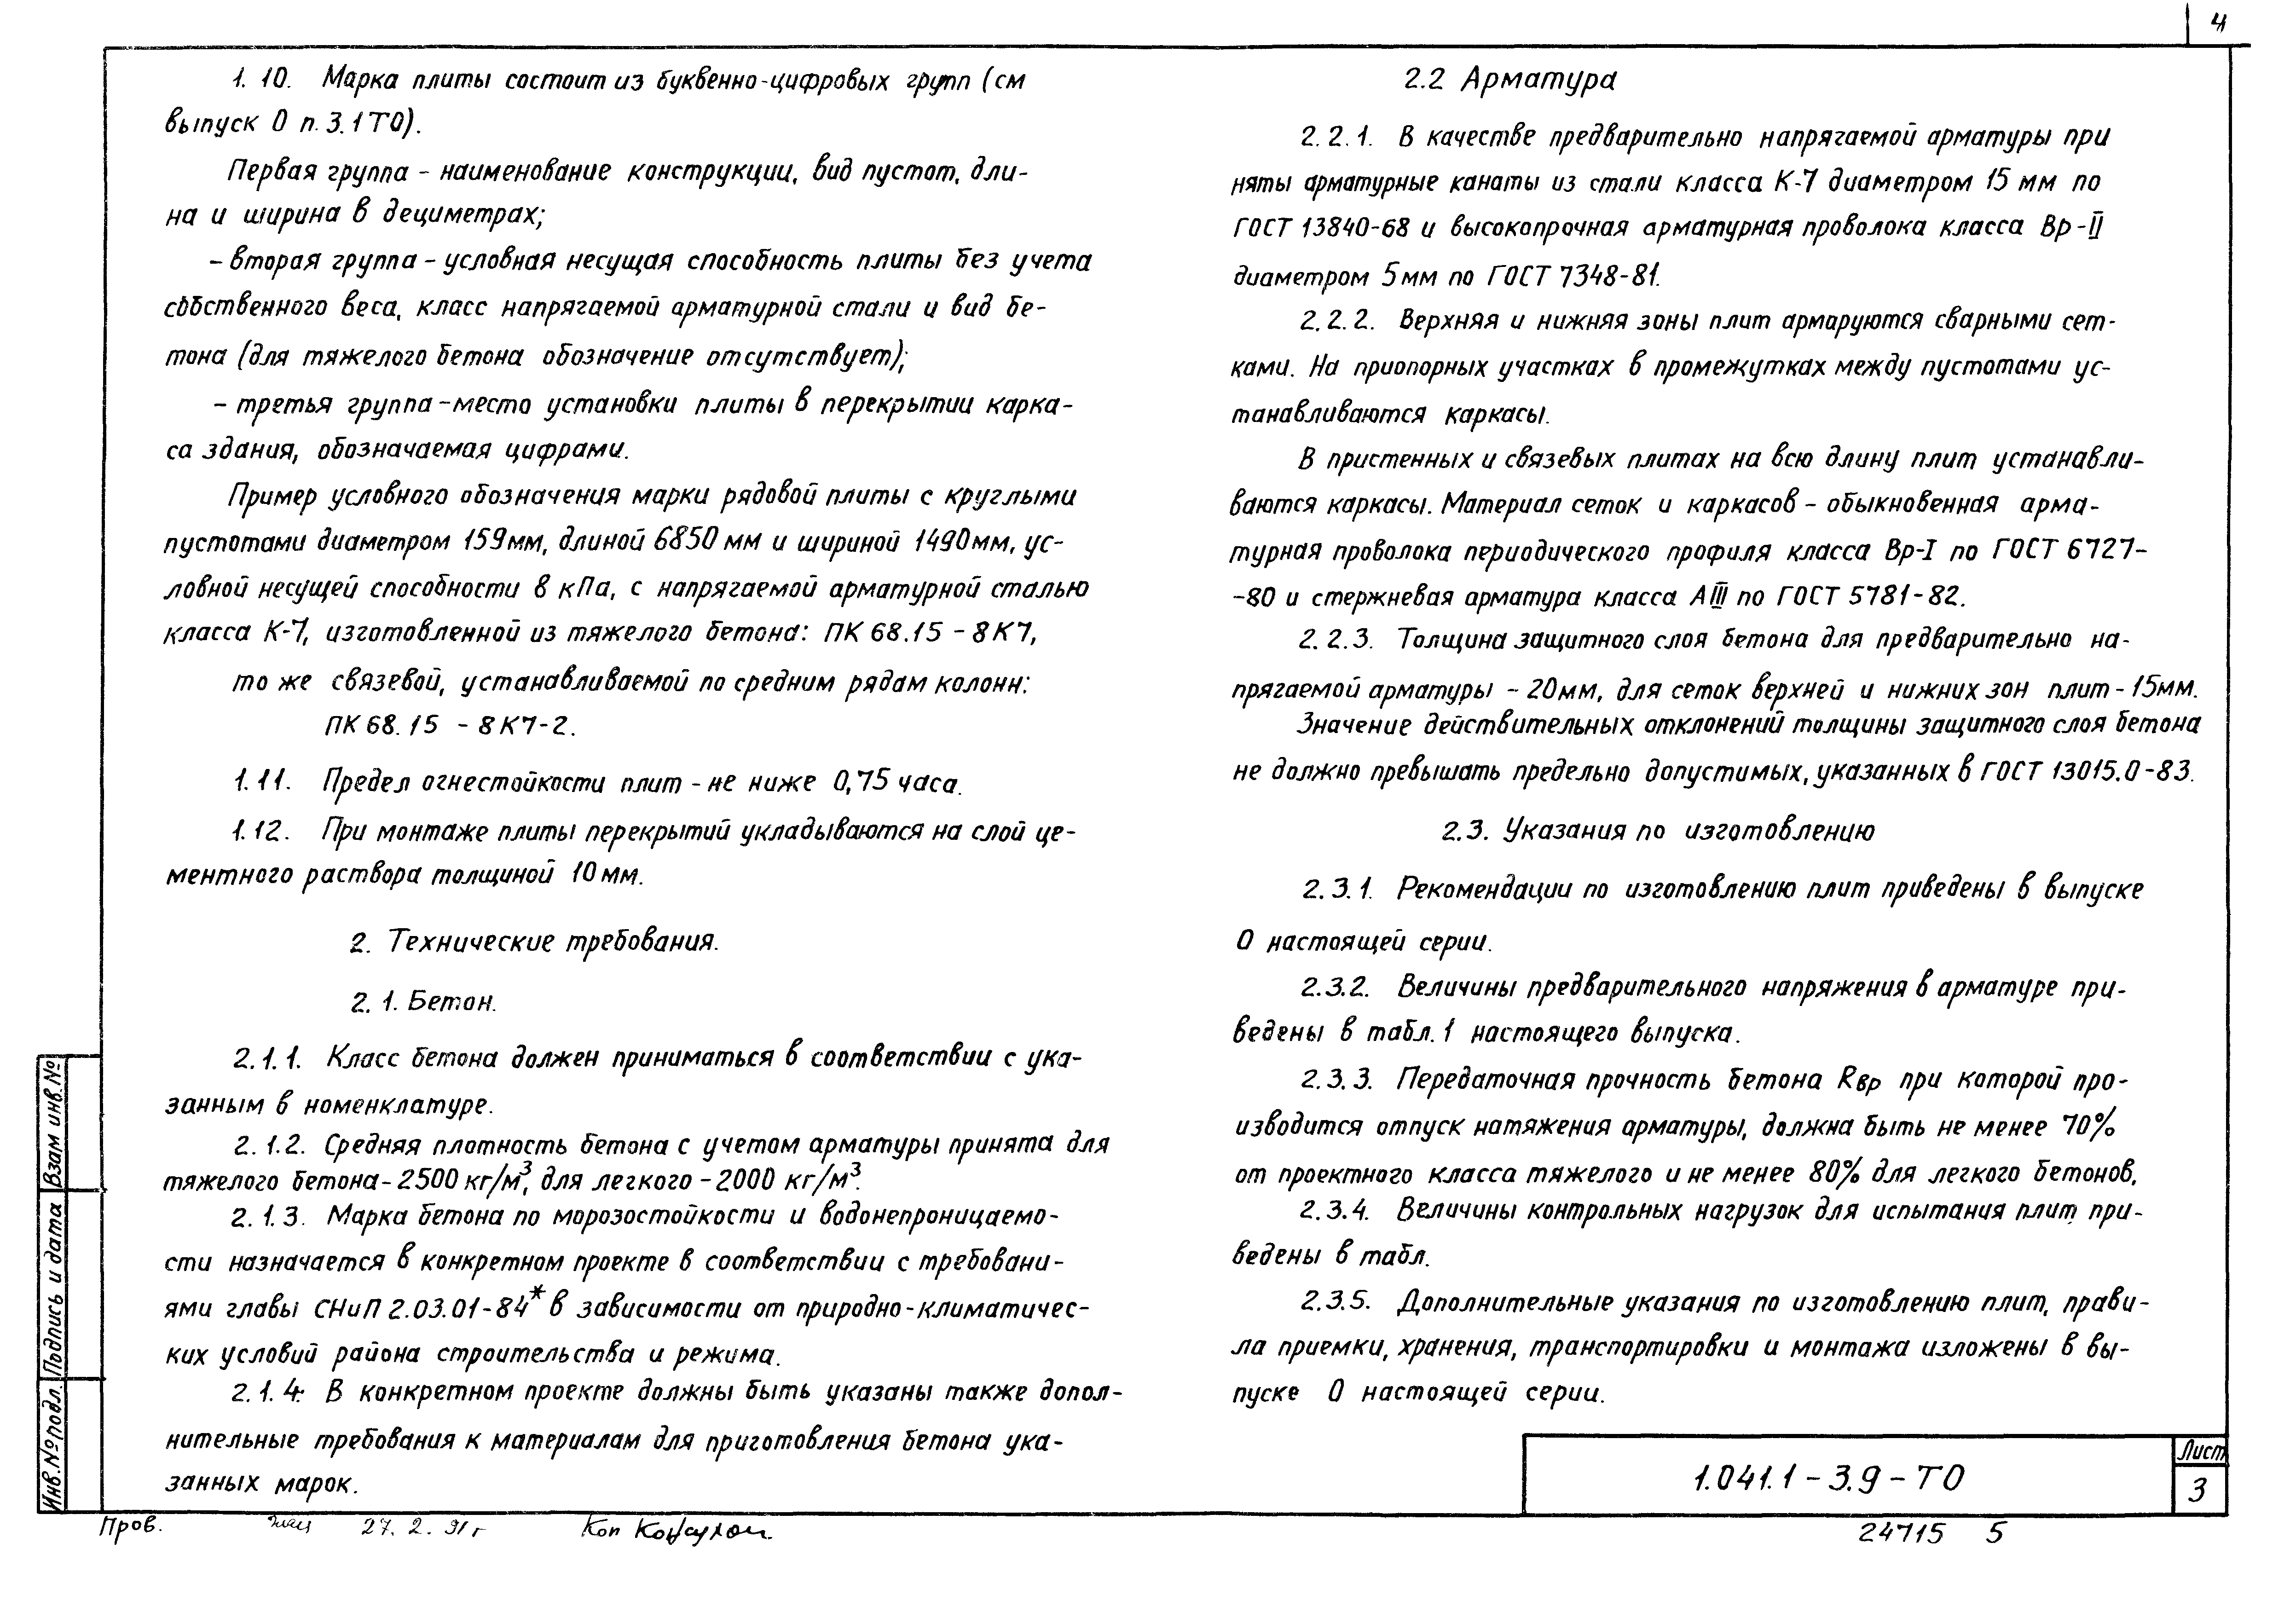 4
1.10. Марка плиты состоит из буквенно-цифровых групп (см
выпуск 0 п. 3.1ТО).
Первая группа - наименование конструкции, вид пустот, дли-
на и ширина в дециметрах;
- вторая группа - условная несущая способность плиты без учета
собственного веса, класс напрягаемой арматурной стали и вид бе-
тона (для тяжелого бетона обозначение отсутствует);
- третья группа - место установки плиты в перекрытии карка-
са здания, обозначаемая цифрами.
Пример условного обозначения марки рядовой плиты с круглыми
пустотами диаметром 159мм, длиной 6850 мм и шириной 1490мм, ус-
ловной несущей способности 8 кПа, с напрягаемой арматурной сталью
класса К-7, изготовленной из тяжелого бетона: ПК 68.15 - 8К7,
то же связевой, устанавливаемой по средним рядам колонн:
ПК 68.15 - 8К7-2.
1.11. Предел огнестойкости плит - не ниже 0,75 часа.
1.12. При монтаже плиты перекрытий укладываются на слой це-
ментного раствора толщиной 10 мм.
2. Технические требования.
2.1. Бетон.
2.1.1. Класс бетона должен приниматься в соответствии с ука-
занным в номенклатуре.
2.1.2. Средняя плотность бетона с учетом арматуры принята для
тяжелого бетона - 2500 кг/м³, для легкого - 2000 кг/м³.
2.1.3. Марка бетона по морозостойкости и водонепроницаемо-
сти назначается в конкретном проекте в соответствии с требовани-
ями главы СНиП 2.03.01-84* в зависимости от природно-климатичес-
ких условий района строительства и режима.
2.1.4. В конкретном проекте должны быть указаны также допол-
нительные требования к материалам для приготовления бетона ука-
занных марок.
2.2 Арматура
2.2.1. В качестве предварительно напрягаемой арматуры при
няты арматурные канаты из стали класса К-7 диаметром 15 мм по
ГОСТ 13840-68 и высокопрочная арматурная проволока класса Вр-II
диаметром 5мм по ГОСТ 7348-81.
2.2.2. Верхняя и нижняя зоны плит армаруются сварными сет-
ками. На приопорных участках в промежутках между пустотами ус-
танавливаются каркасы.
В пристенных и связевых плитах на всю длину плит устанавли-
ваются каркасы. Материал сеток и каркасов - обыкновенная арма-
турная проволока периодического профиля класса Вр-I по ГОСТ 6727-
-80 и стержневая арматура класса АIII по ГОСТ 5781-82.
2.2.3. Толщина защитного слоя бетона для предварительно на-
прягаемой арматуры - 20мм, для сеток верхней и нижних зон плит - 15мм.
Значение действительных отклонений толщины защитного слоя бетона
не должно превышать предельно допустимых, указанных в ГОСТ 13015.0-83.
2.3. Указания по изготовлению
2.3.1. Рекомендации по изготовлению плит приведены в выпуске
0 настоящей серии.
2.3.2. Величины предварительного напряжения в арматуре при-
ведены в табл. 1 настоящего выпуска.
2.3.3. Передаточная прочность бетона Rвр при которой про-
изводится отпуск натяжения арматуры, должна быть не менее 70%
от проектного класса тяжелого и не менее 80% для легкого бетонов.
2.3.4. Величины контрольных нагрузок для испытания плит при-
ведены в табл.
2.3.5. Дополнительные указания по изготовлению плит, прави-
ла приемки, хранения, транспортировки и монтажа изложены в вы-
пуске 0 настоящей серии.
Инв.№подл. Подпись и дата Взам инв.№
1.041.1-3.9-ТО
Лист
3
Пров. 27.2.91г Коп
24715 5